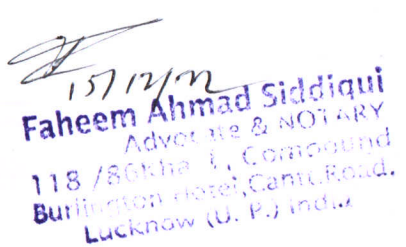 15/12/22
Faheem Ahmad Siddiqui
Advocate & NOTARY
Compound
Burlington Hotel, Cantt. Road,
Lucknow (U. P.) India